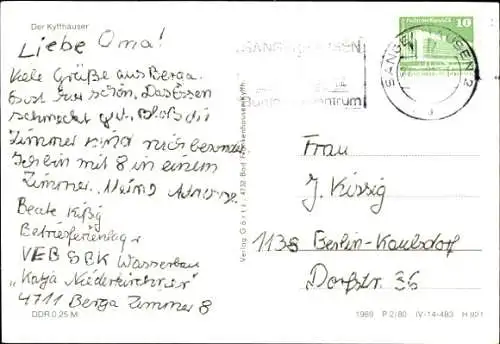 Der Kyffhäuser
Liebe Oma!
Viele Grüße aus Berga.
Es ist hier schön. Das Essen
schmeckt gut. Bloß die
Zimmer sind nich besonders.
Ich bin mit 8 in einem
Zimmer. Meine Adresse.
Beate Kißig
Betriebsferienlager
VEB SBK Wasserbau
„Katja Niederkirchner"
4711 Berga Zimmer 8
DDR 0,25 M
Verlag Görtz, 4732 Bad Frankenhausen/Kyffh.
SANGERHAUSEN
10
SANGERHAUSEN 2
a
Frau
J. Kissig
1138 Berlin-Kaulsdorf
Dorfstr. 36
1969 P 2/80 IV-14-483 H 921